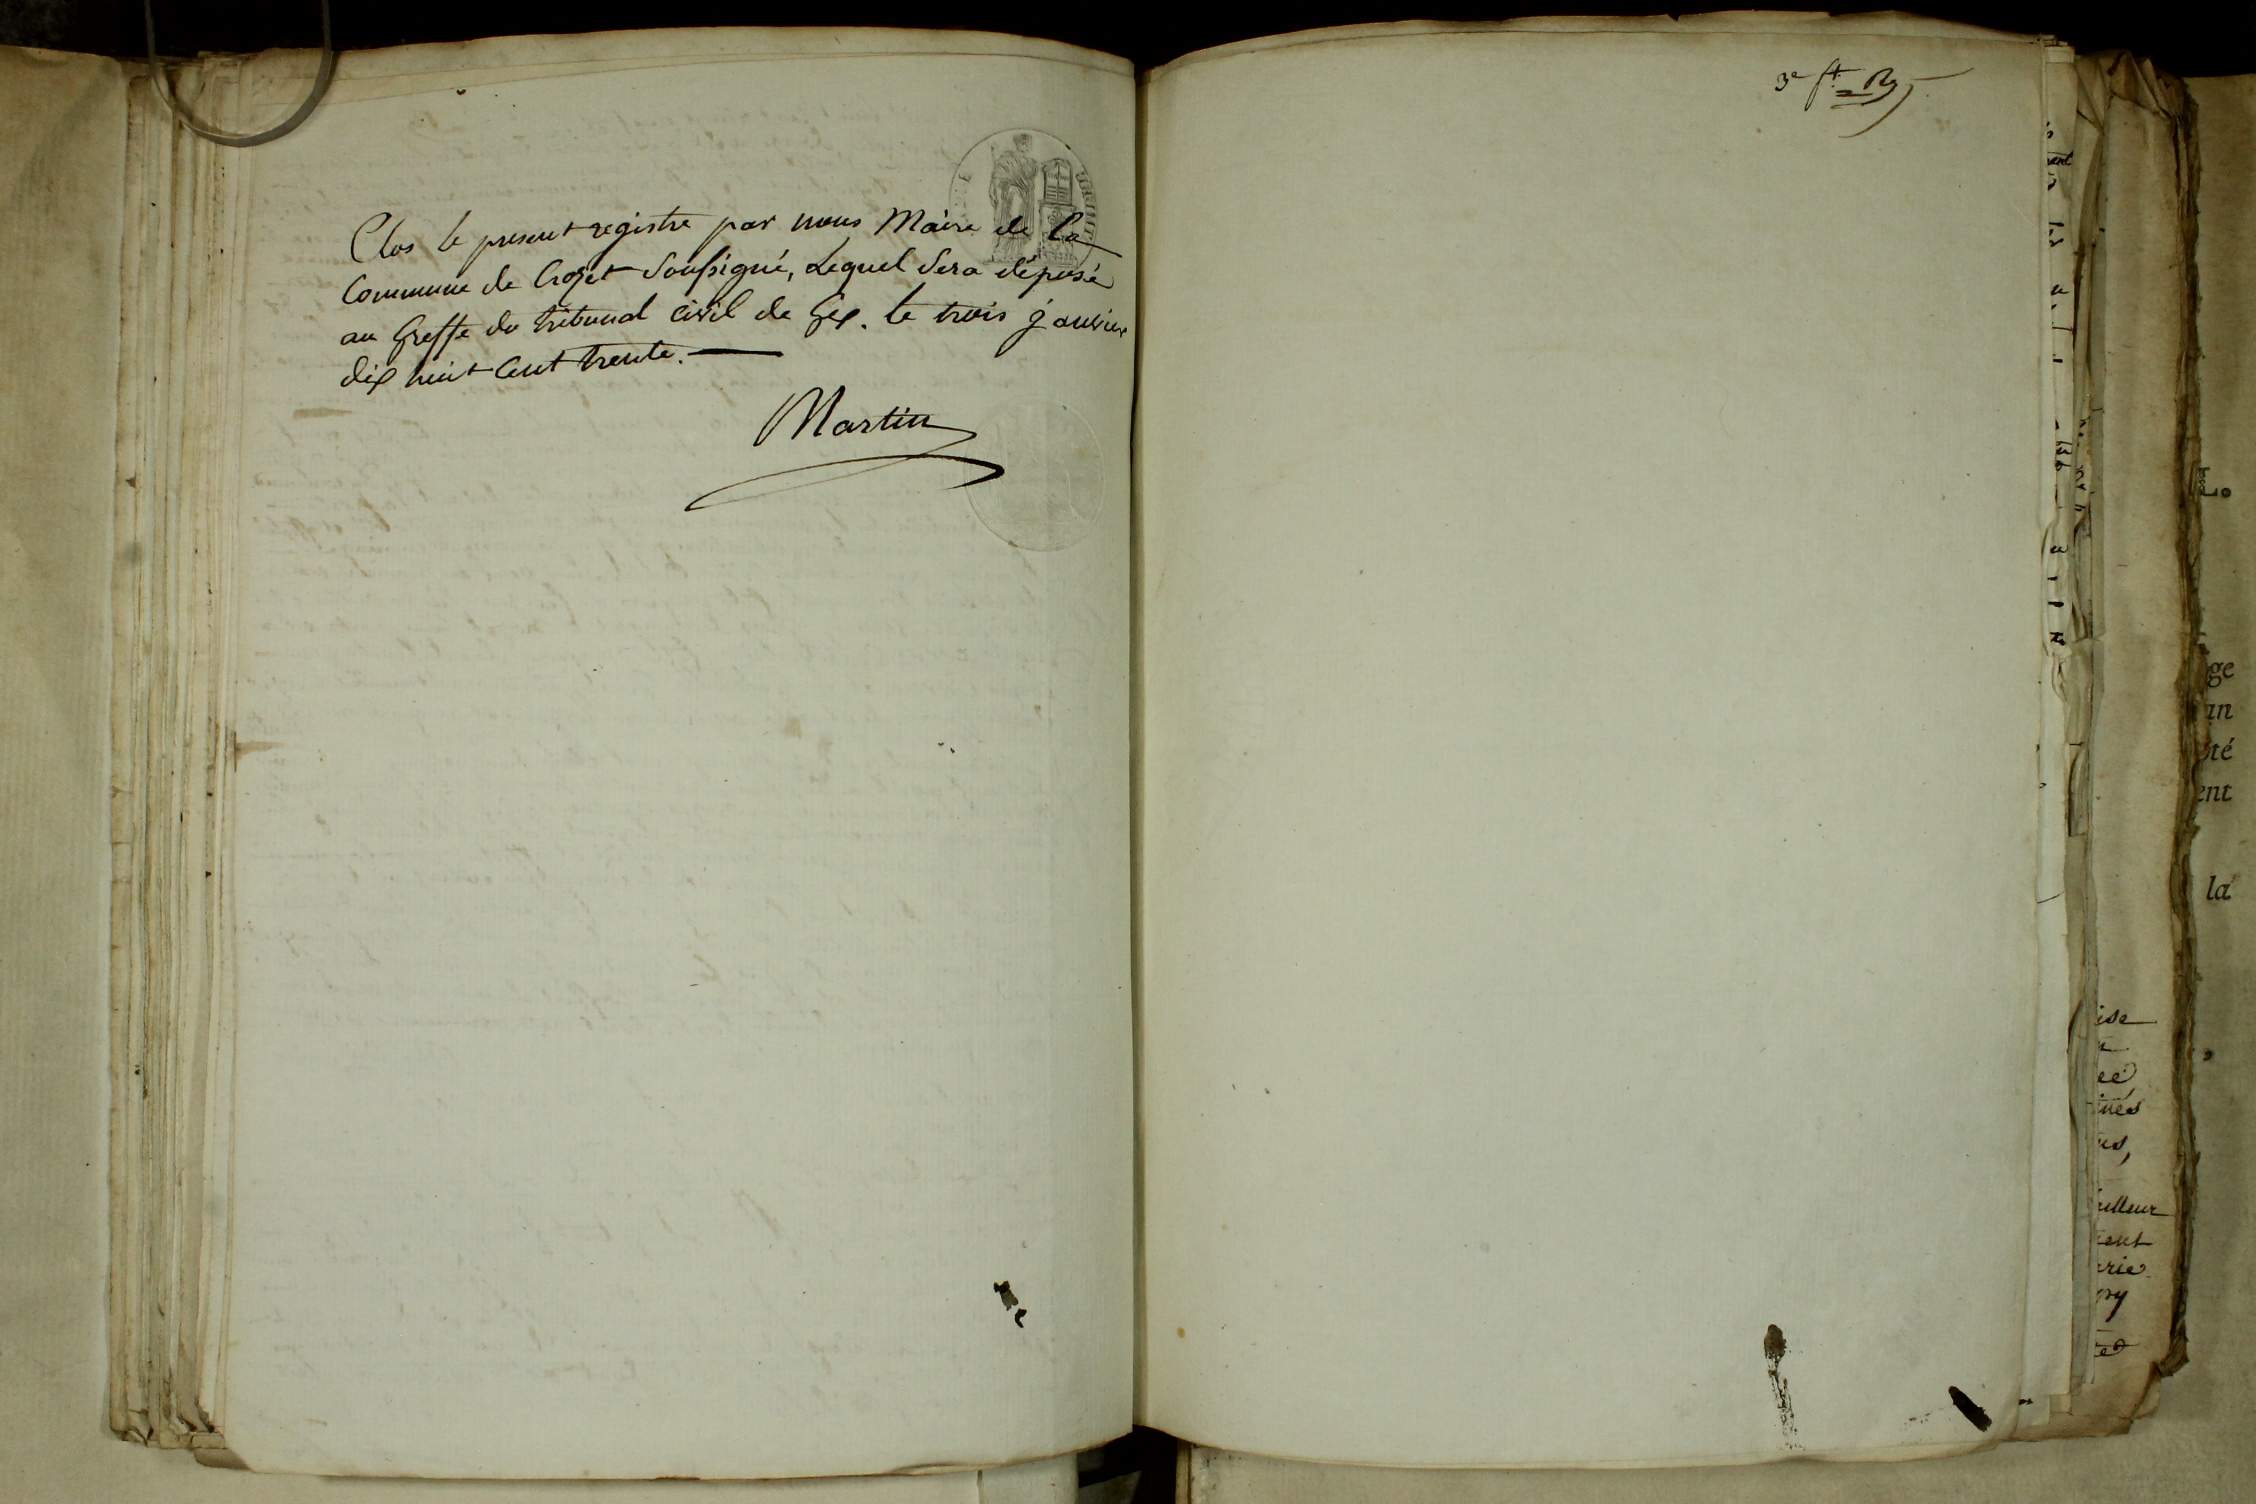 Clos le present registre par nous Maire de la
Commune de Crozet soussigné, Lequel sera déposé
au Greffe du tribunal civil de Gex. le trois janvier
dix huit cent trente.
Martin
3e ft.
ge
an
té
ent
la
ise
ée
inées
us,
ailleur
tent
arie
gry